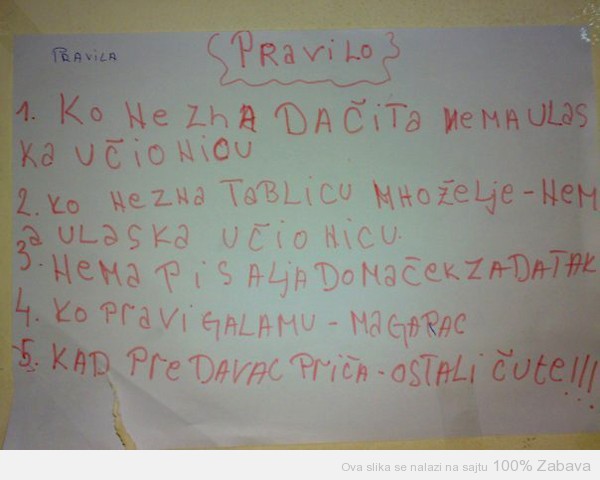 PRAViLA
{PRaViLo}
1. Ko He ZhA DAČiTA HeMA ULaS
Ka UČiOHiOU
2. Ko HeZHa TaBLICU MHOŽeLje - HeM
a ULaSKa UČiOHiCU.
3. HeMa PiSALjA DOMAČeK ZADATAK
4. Ko PraVi GALAMU - MaGARAC
5. KAD PreDAVAC PriČA - OSTALi ČUTe!!!
Ova slika se nalazi na sajtu 100% Zabava